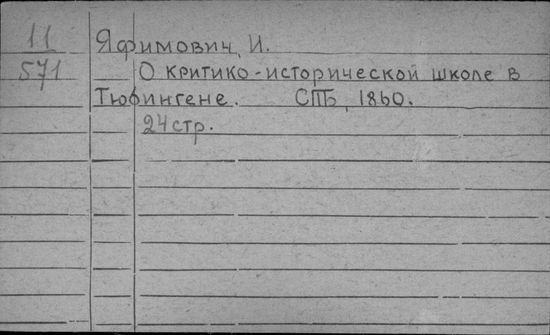 11
571
Яфимович, И.
О критико-исторической школе в
Тюбингене. СПБ, 1860.
24 стр.